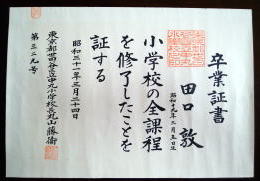 卒業証書
田口敦
昭和十九年二月五日生
小学校の全課程
を修了したことを
証する
昭和三十一年三月二十四日
東京都世田谷区立中丸小学校長丸山藤衛
第三二九号